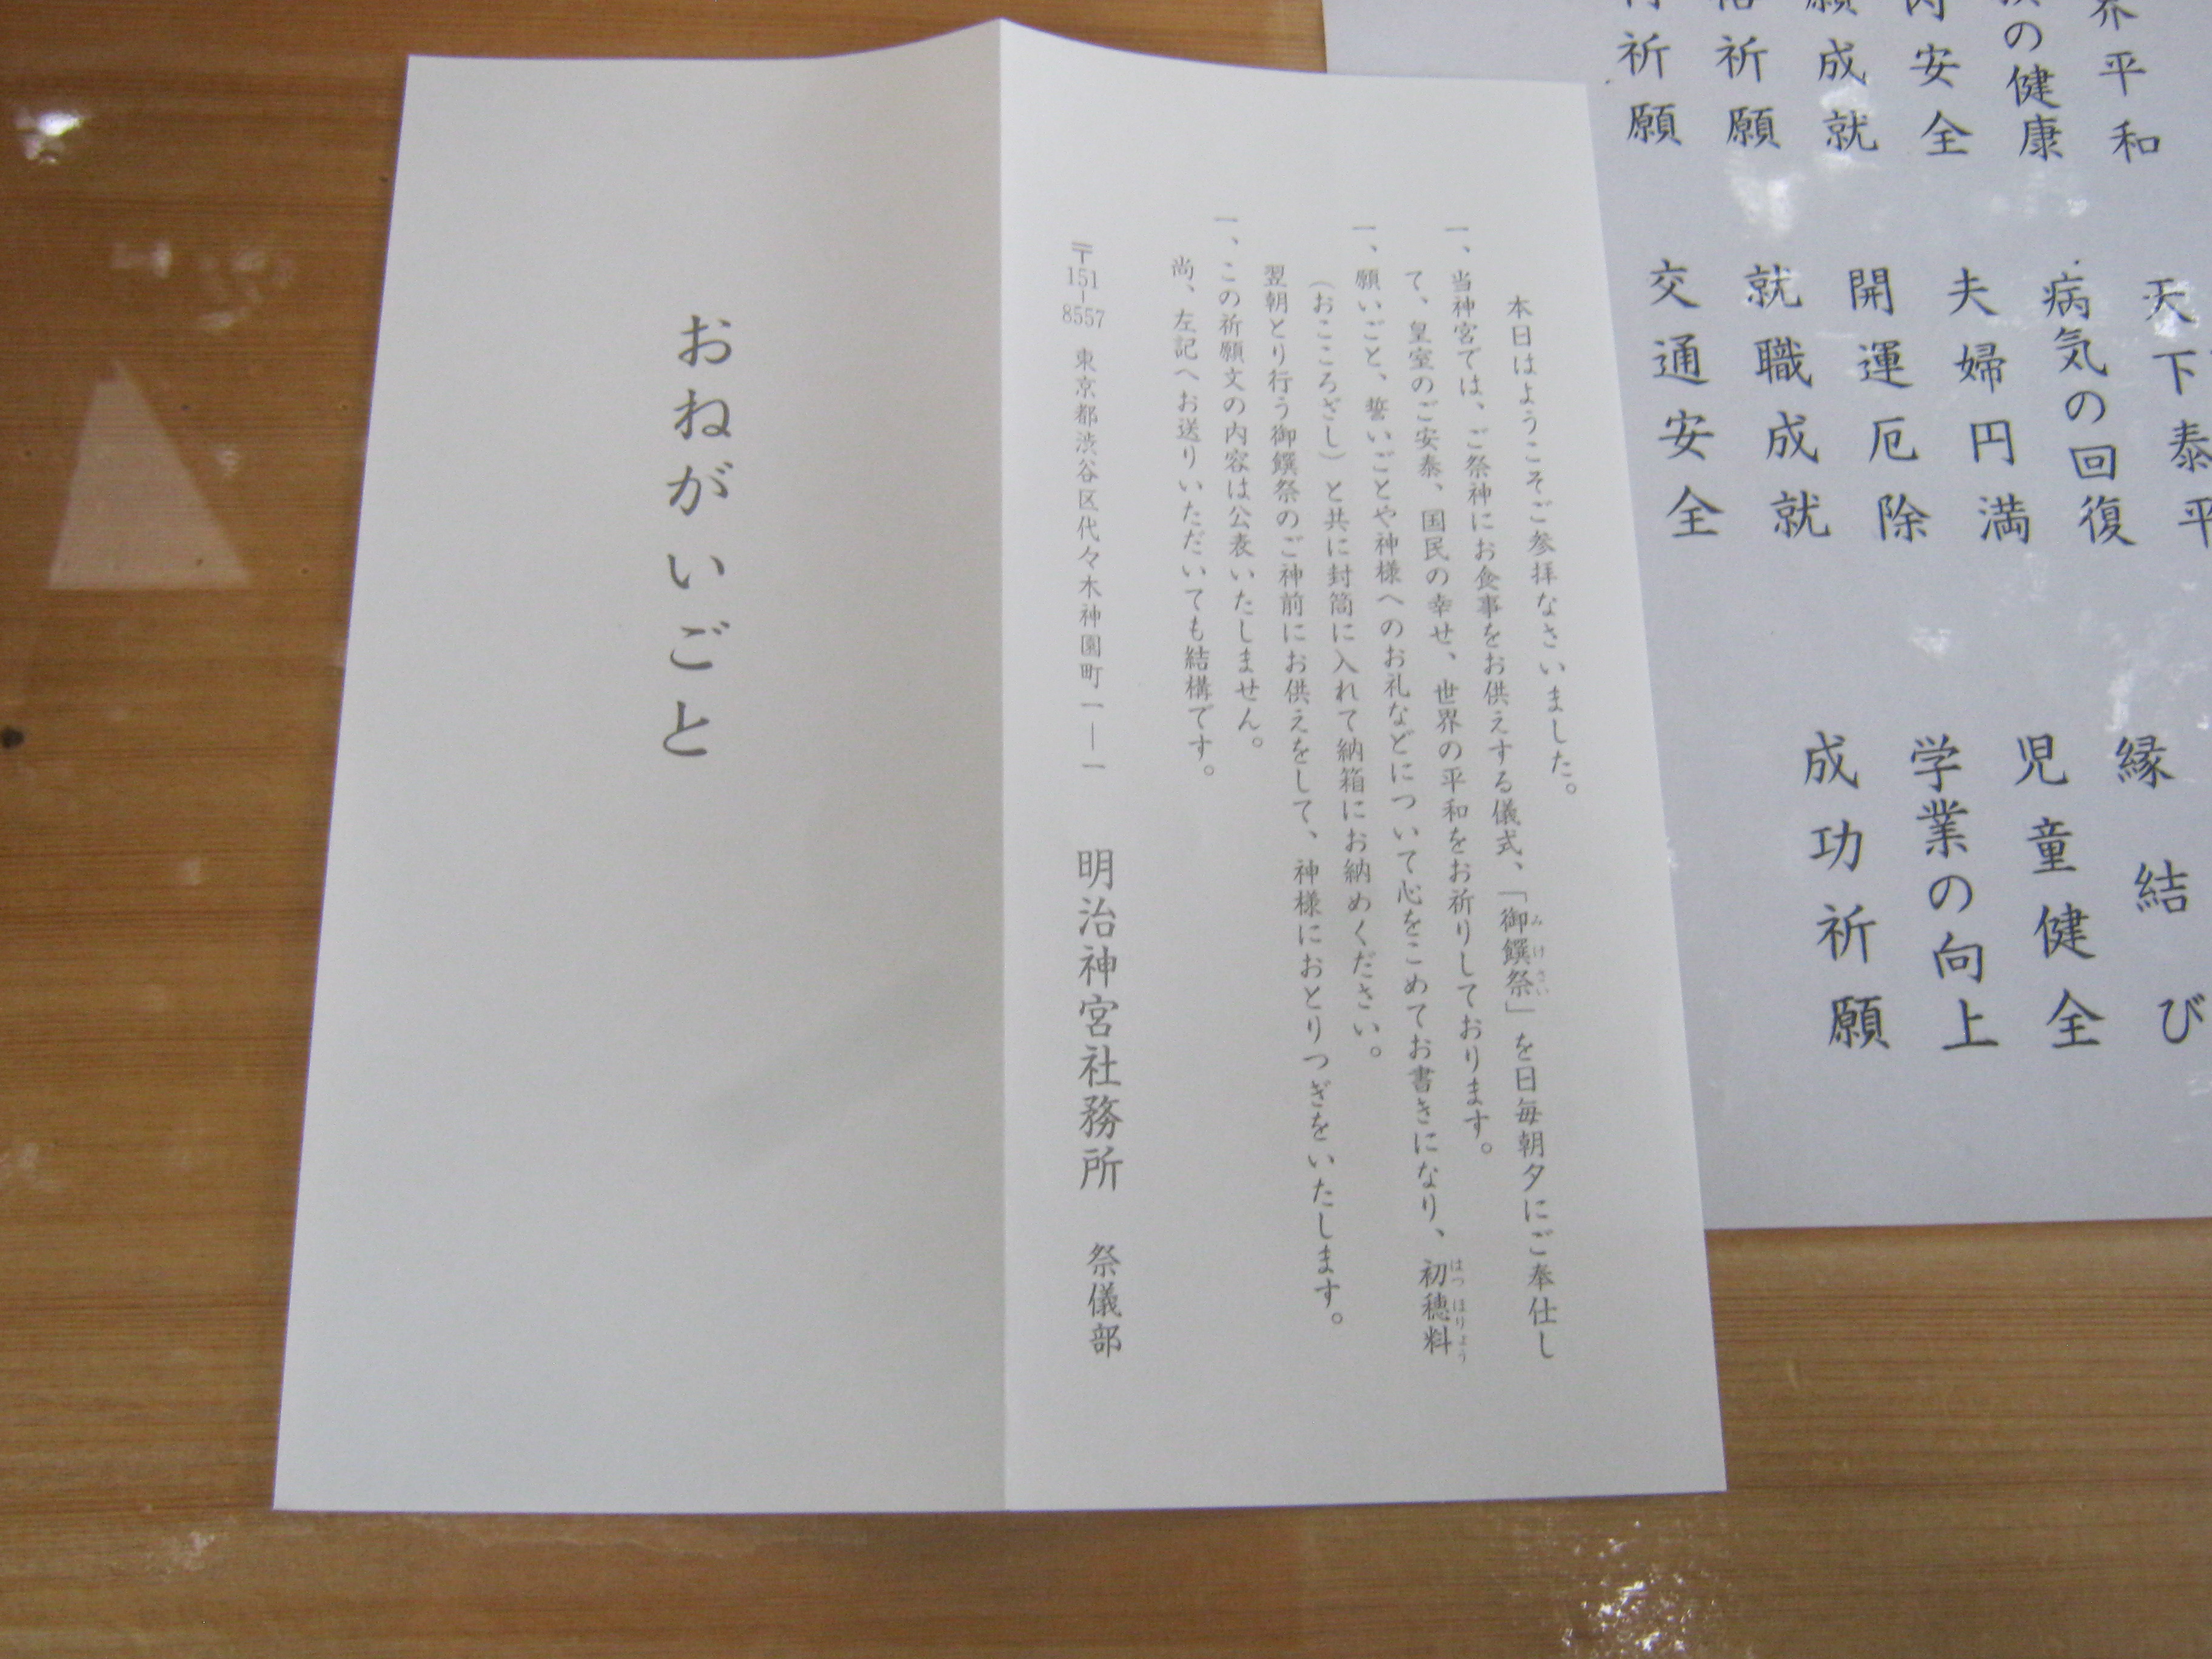 界平和
の健康
内安全
願成就
祈願
祈願
天下泰平
病気の回復
夫婦円満
開運厄除
就職成就
交通安全
縁結び
児童健全
学業の向上
成功祈願
本日はようこそご参拝なさいました。
一、当神宮では、ご祭神にお食事をお供えする儀式、「御饌祭」を日毎朝夕にご奉仕し
みけさい
て、皇室のご安泰、国民の幸せ、世界の平和をお祈りしております。
一、願いごと、誓いごとや神様へのお礼などについて心をこめてお書きになり、初穂料
はつほりょう
（おこころざし）と共に封筒に入れて納箱にお納めください。
翌朝とり行う御饌祭のご神前にお供えをして、神様におとりつぎをいたします。
一、この祈願文の内容は公表いたしません。
尚、左記へお送りいただいても結構です。
〒151-8557 東京都渋谷区代々木神園町一―一 明治神宮社務所 祭儀部
おねがいごと